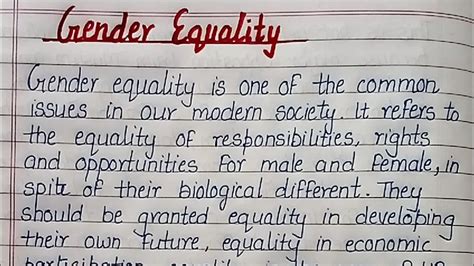 Gender Equality
Gender equality is one of the common
issues in our modern society. It refers to
the equality of responsibilities, rights
and opportunities for male and female, in
spite of their biological different. They
should be granted equality in developing
their own future, equality in economic
participation